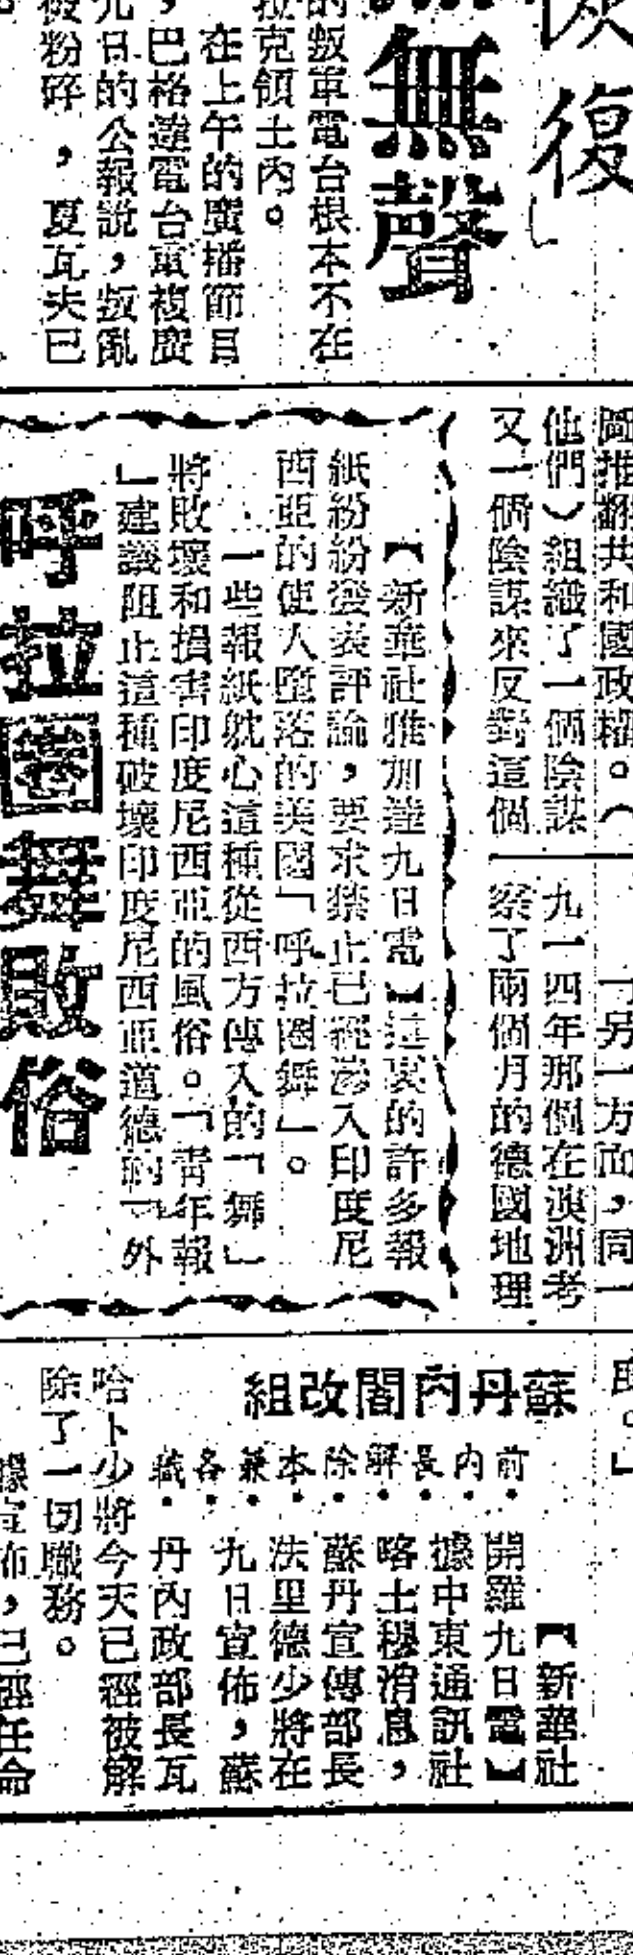 恢復
無聲
的叛軍電台根本不在
拉克領土內。
在上午的廣播節目
，巴格達電台重複廣
九日的公報說，叛亂
被粉碎，夏瓦夫已
圖推翻共和國政權。（
他們）組織了一個陰謀
又一個陰謀來反對這個
另一方面，同一
九一四年那個在澳洲考
察了兩個月的德國地理
呼拉圈舞敗俗
【新華社雅加達九日電】這裏的許多報
紙紛紛發表評論，要求禁止已經滲入印度尼
西亞的使人墮落的美國「呼拉圈舞」。
一些報紙躭心這種從西方傳入的「舞」
將敗壞和損害印度尼西亞的風俗。「青年報
」建議阻止這種破壞印度尼西亞道德的「外
蘇丹內閣改組
前內長解除本兼各職
【新華社
開羅九日電】
據中東通訊社
略土穆消息，
蘇丹宣傳部長
法里德少將在
九日宣佈，蘇
丹內政部長瓦
哈卜少將今天已經被解
除了一切職務。
據宣佈，已經任命